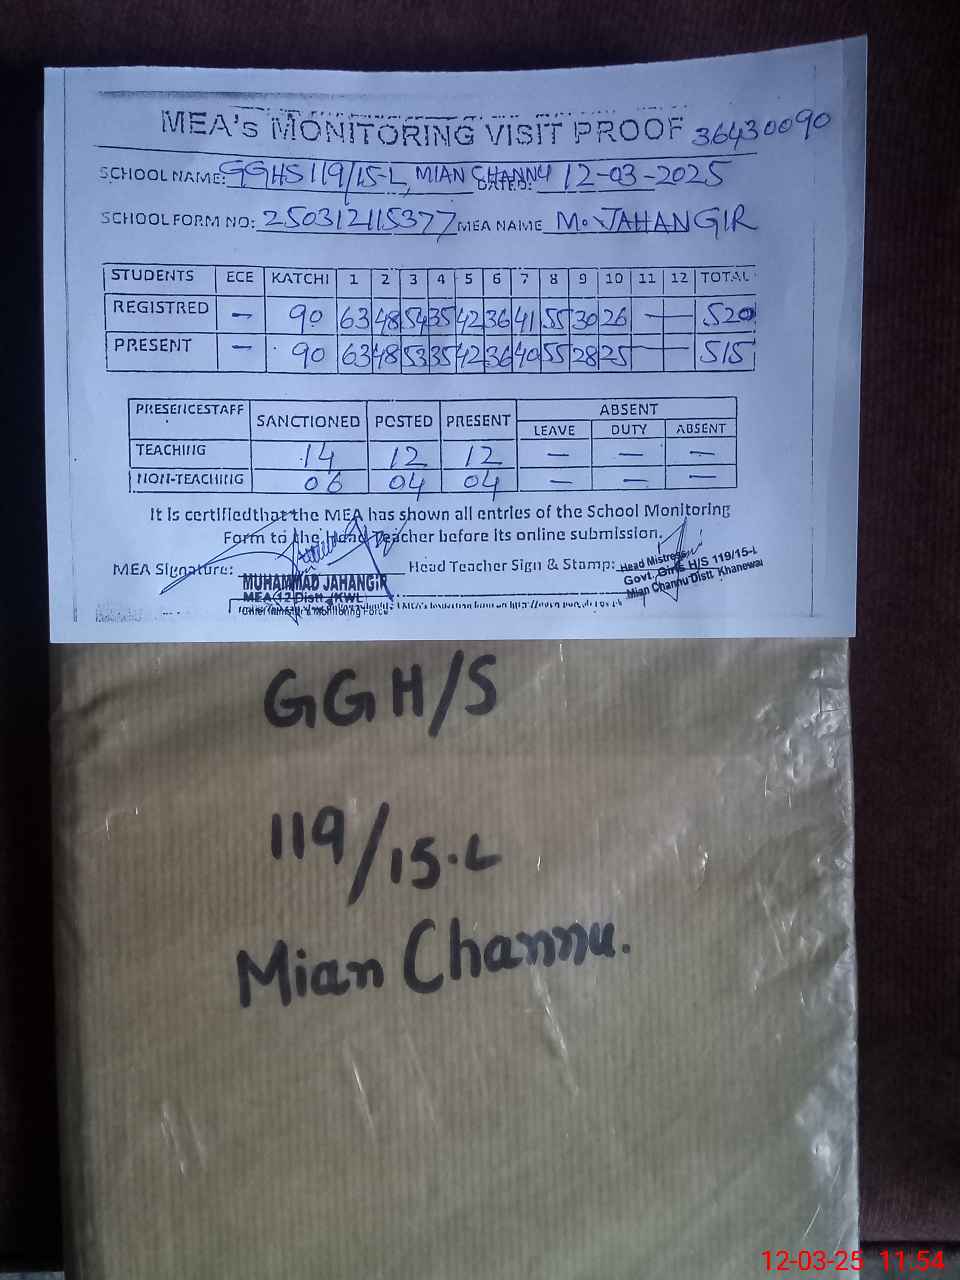 MEA's MONITORING VISIT PROOF 36430090
SCHOOL NAME: GGHS 119/15-L, MIAN CHANNU DATED: 12-03-2025
SCHOOL FORM NO: 250312115377 MEA NAME M. JAHANGIR
STUDENTS ECE KATCHI 1 2 3 4 5 6 7 8 9 10 11 12 TOTAL
REGISTRED - 90 63 48 54 35 42 36 41 55 30 26 — — 520
PRESENT - 90 63 48 53 35 42 36 40 55 28 25 — — 515
PRESENCESTAFF SANCTIONED POSTED PRESENT ABSENT
LEAVE DUTY ABSENT
TEACHING 14 12 12 — — —
NON-TEACHING 06 04 04 — — —
It is certifiedthat the MEA has shown all entries of the School Monitoring
Form to the Head Teacher before its online submission.
MEA Signature: Head Teacher Sign & Stamp:
MUHAMMAD JAHANGIR
MEA 12 Distt. KWL
Monitoring Force
Head Mistress
Govt. Girls H/S 119/15-L
Mian Channu Distt Khanewal
GGH/S
119/15.L
Mian Channu.
12-03-25 11:54